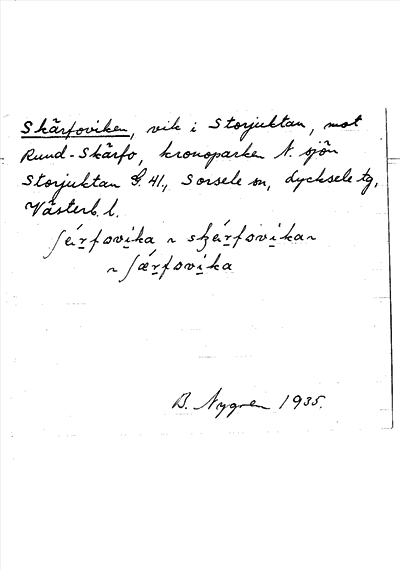 Skärfoviken, vik i Storjuktan, mot
Rund-Skärfo, kronoparken N. sjön
Storjuktan G. 41, Sorsele sn, Lycksele tg,
Västerb. l.
ʃérfovika ~ sʒérfovika ~
~ ʃǽrfovika
B. Nygren 1935.